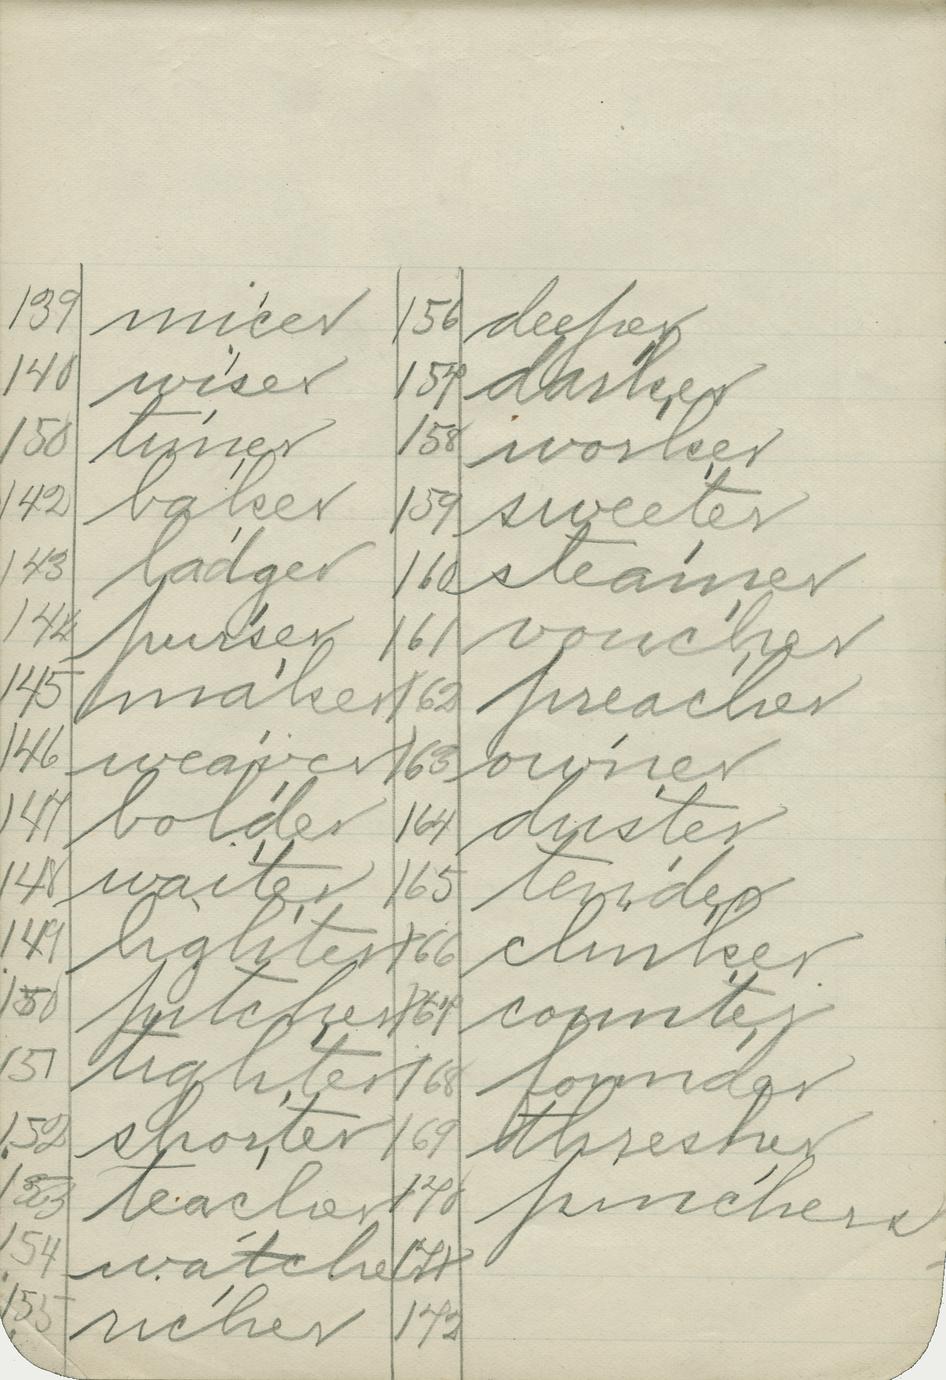 139 nicer
140 wiser
150 tuner
142 baker
143 badger
144 purser
145 maker
146 weaver
147 bolder
148 waiter
149 lighter
150 pitcher
151 tighter
152 shorter
153 teacher
154 watcher
155 richer
156 deeper
157 darker
158 worker
159 sweeter
160 steamer
161 voucher
162 preacher
163 owner
164 duster
165 tender
166 clinker
167 counter
168 founder
169 thresher
170 pinchers
171
172